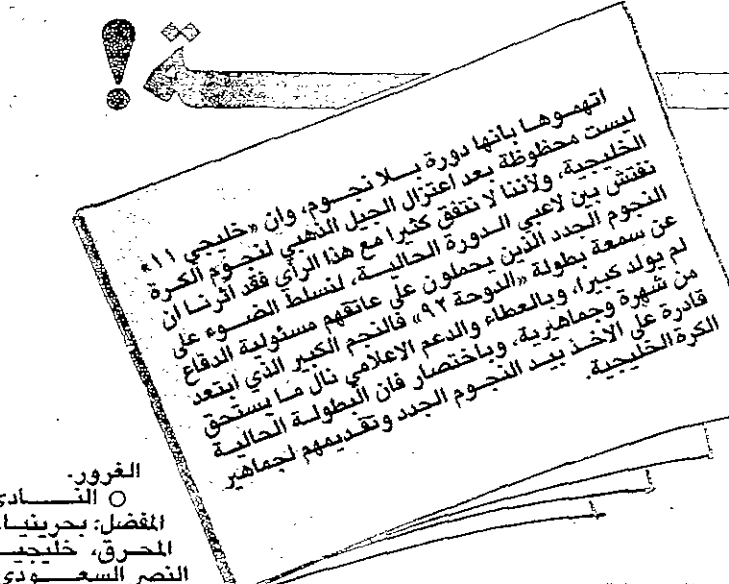 !
اتهموها بانها دورة بلا نجوم، وان «خليجي ١١»
ليست محظوظة بعد اعتزال الجيل الذهبي لنجوم الكرة
الخليجية، ولأننا لا نتفق كثيرا مع هذا الرأي فقد آثرنا ان
نفتش بين لاعبي الدورة الحالية، لنسلط الضوء على
النجوم الجدد الذين يحملون على عاتقهم مسئولية الدفاع
عن سمعة بطولة «الدوحة ٩٢» فالنجم الكبير الذي ابتعد
لم يولد كبيرا، وبالعطاء والدعم الاعلامي نال ما يستحق
من شهرة وجماهيرية، وباختصار فان البطولة الحالية
قادرة على الأخذ بيد النجوم الجدد وتقديمهم لجماهير
الكرة الخليجية.
الغرور.
○ النادي
المفضل: بحرينيا
المحرق، خليجيا
النصر السعودي